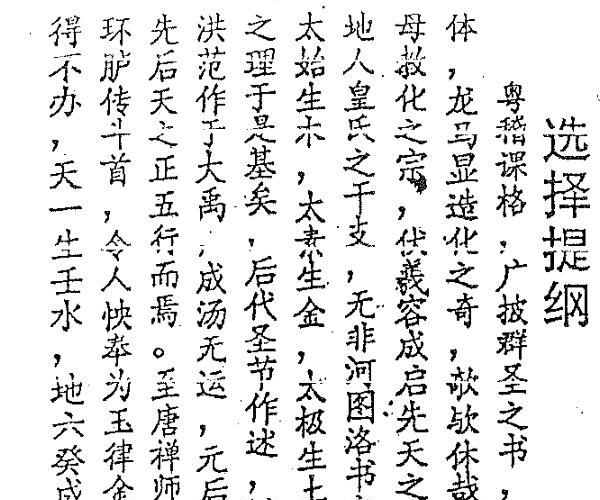 选择提纲
粤稽课格，广披群圣之书，
体，龙马显造化之奇，欹欤休哉
母教化之宗，伏羲容成启先天之
地人皇氏之干支，无非河图洛书
太始生木，太素生金，太极生土
之理于是基矣，后代圣节作述，
洪范作于大禹，成汤无运，元后
先后天之正五行而焉。至唐禅师
环胪传斗首，令人怏奉为玉律金
得不办，天一生壬水，地六癸成